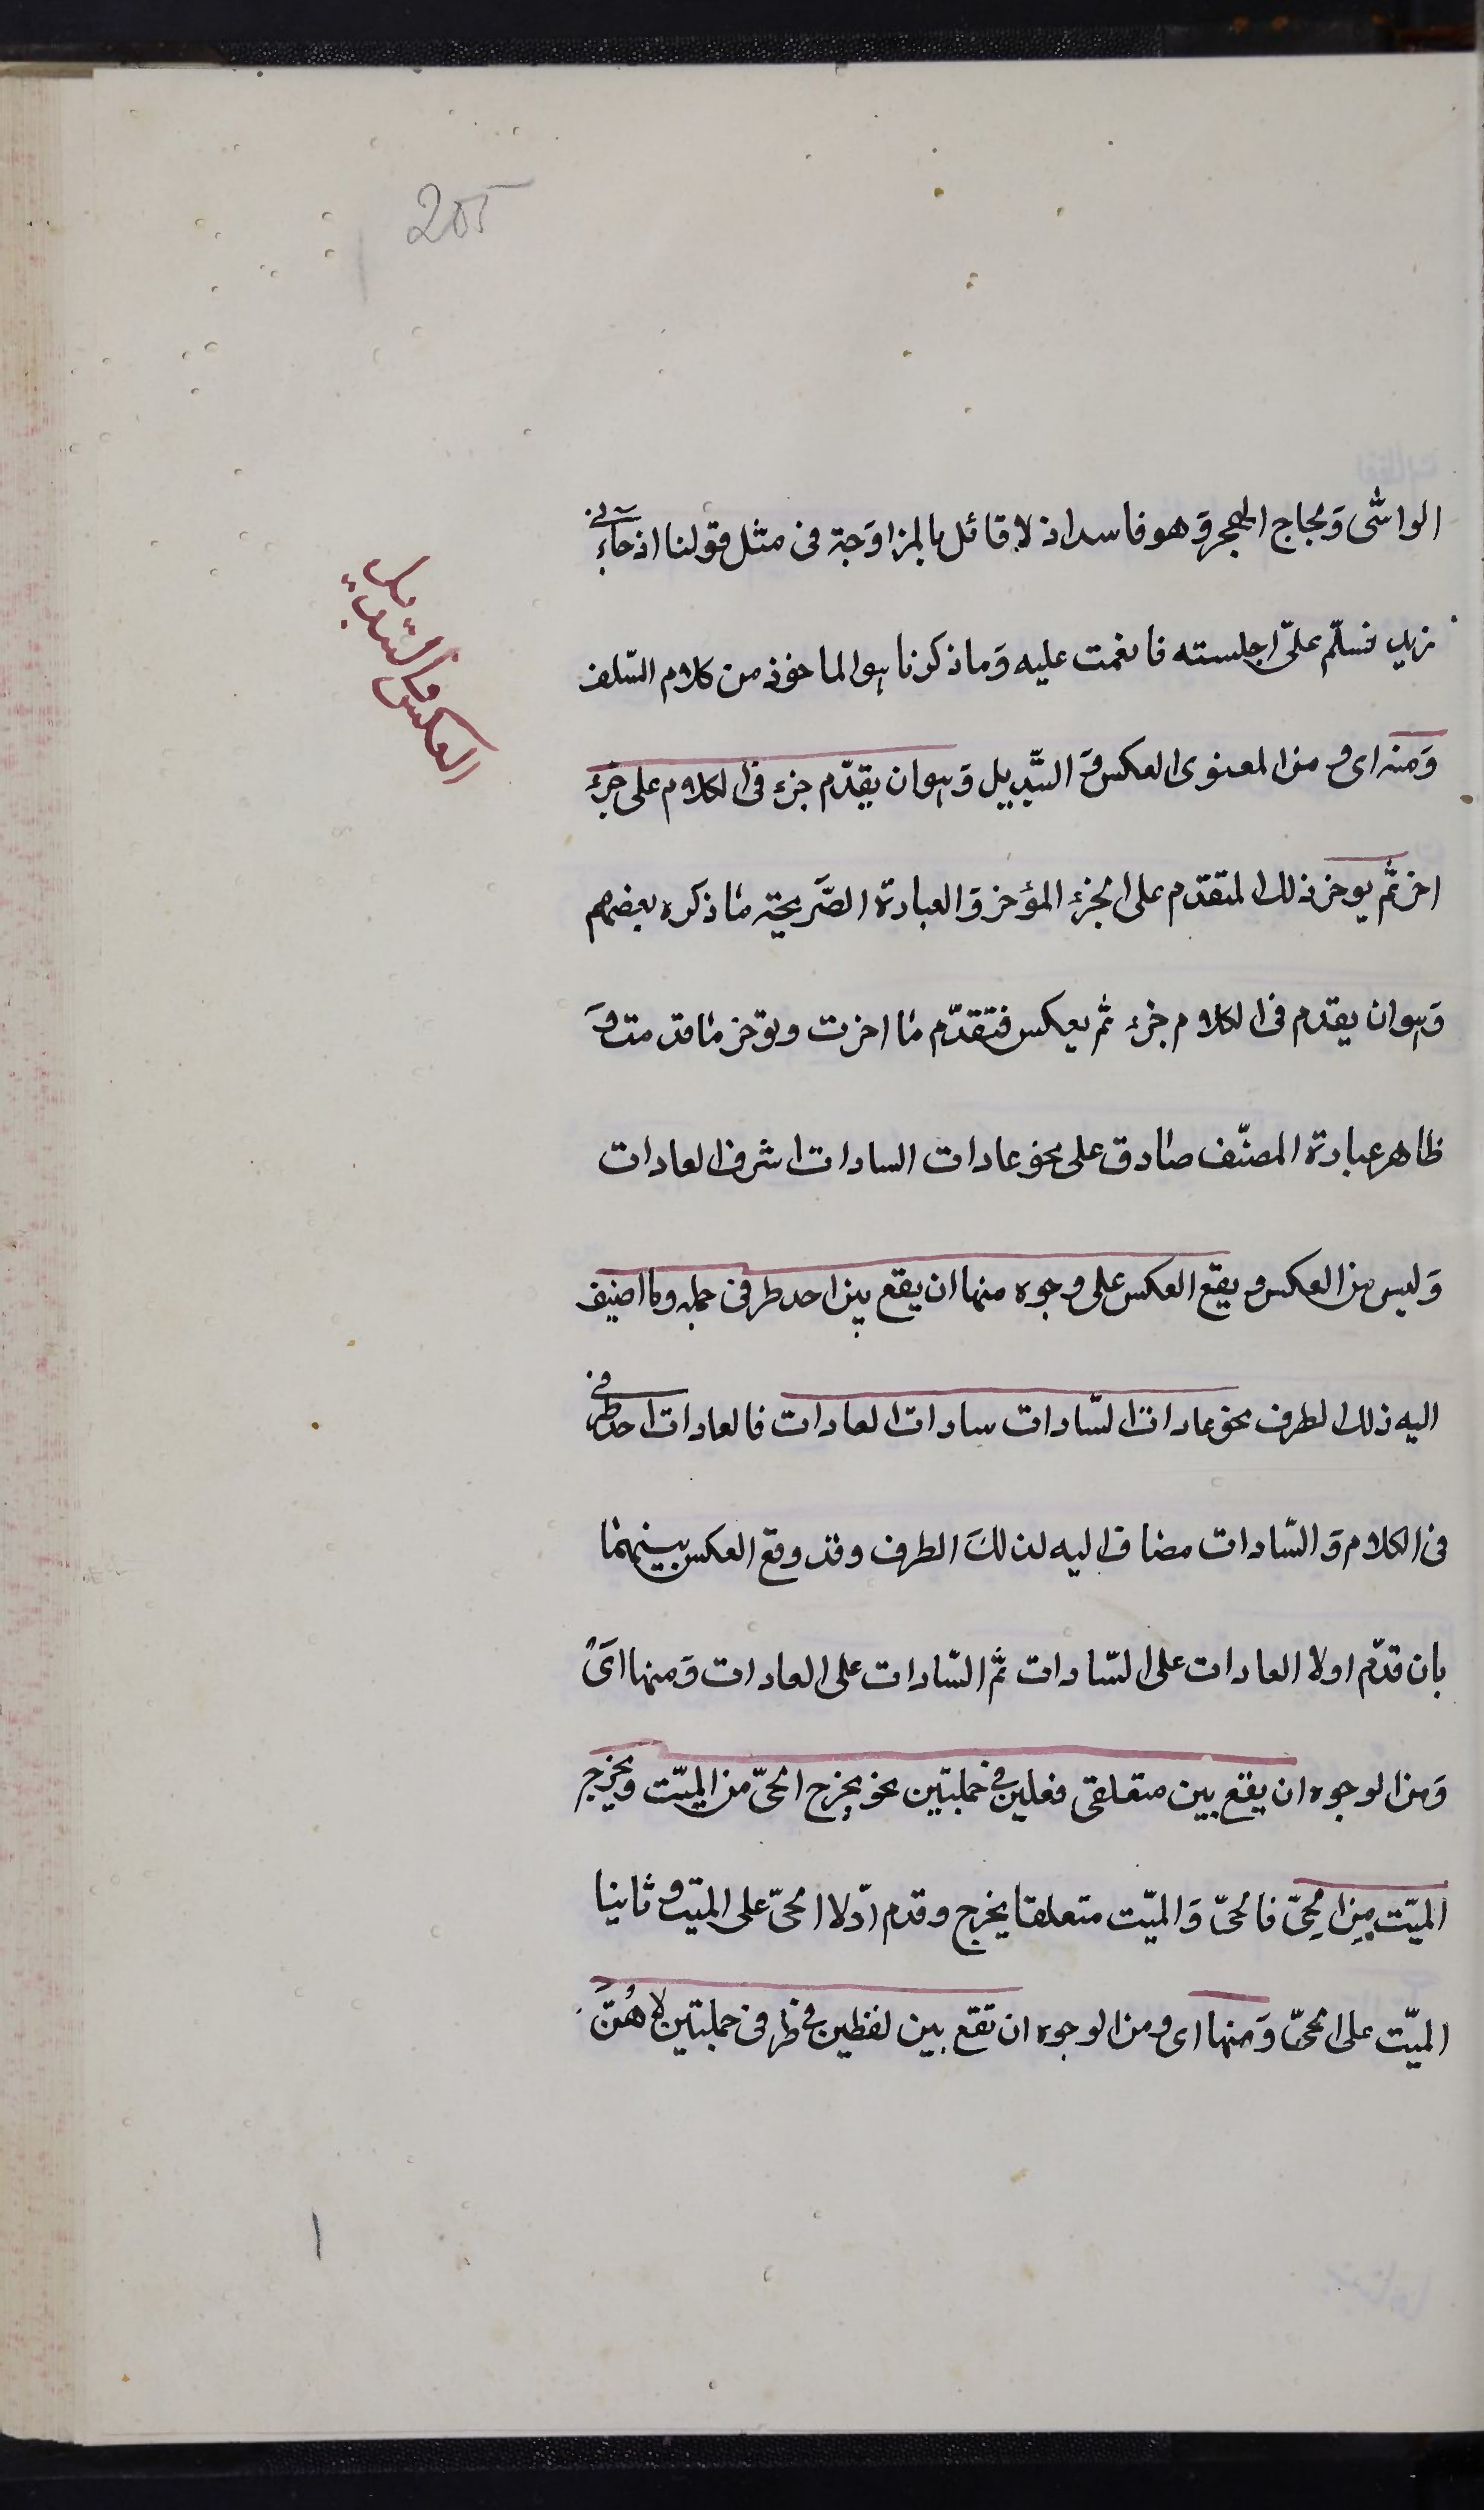 205
العكس والتبديل
الواشى وَلجاج الهجر وَهو فاسد اذ لا قائل بالمزاوَجة فى مثل قولنا اذ جآءنى
زيد فسلّم علىّ اجلسته فانعمت عليه وَما ذكرنا هو الماخوذ من كلام السّلف
وَمنه اى ومن المعنوى العكس وَ التّبديل وَهو ان يقدّم جزء فى الكلام على جزء
اخر ثم يوخر ذلك المتقدم على الجزء المؤخر وَ العبارة الصَّريحة ما ذكره بعضهم
وَهو ان يقدم فى الكلام جزء ثم يعكس فتقدّم ما اخرت وتوخر ما قدمت وَ
ظاهر عبارة المصنّف صادق على نحو عادات السادات اشرف العادات
وَليس من العكس و يقع العكس على وجوه منها ان يقع بين احد طرفى جملة وما اضيف
اليه ذلك الطرف نحو عادات السّادات سادات العادات فالعادات احد طرفى
فى الكلام وَ السّادات مضاف اليه لذلكَ الطرف وقد وقع العكس بينهما
بان قدّم اولا العادات على السّادات ثم السّادات على العادات وَمنها اىْ
وَمن الوجوه ان يقع بين متعلقى فعلين فى جملتين نحو يخرج الحىّ من الميّت ويخرج
الميّت مِن الحىِّ فالحىّ وَالميّت متعلقا يخرج وقدم اوّلا الحىّ على الميّت و ثانيا
الميّت على الحىّ وَمنها اى ومن الوجوه ان تقع بين لفظين فى طرفى جملتين لا هُنّ